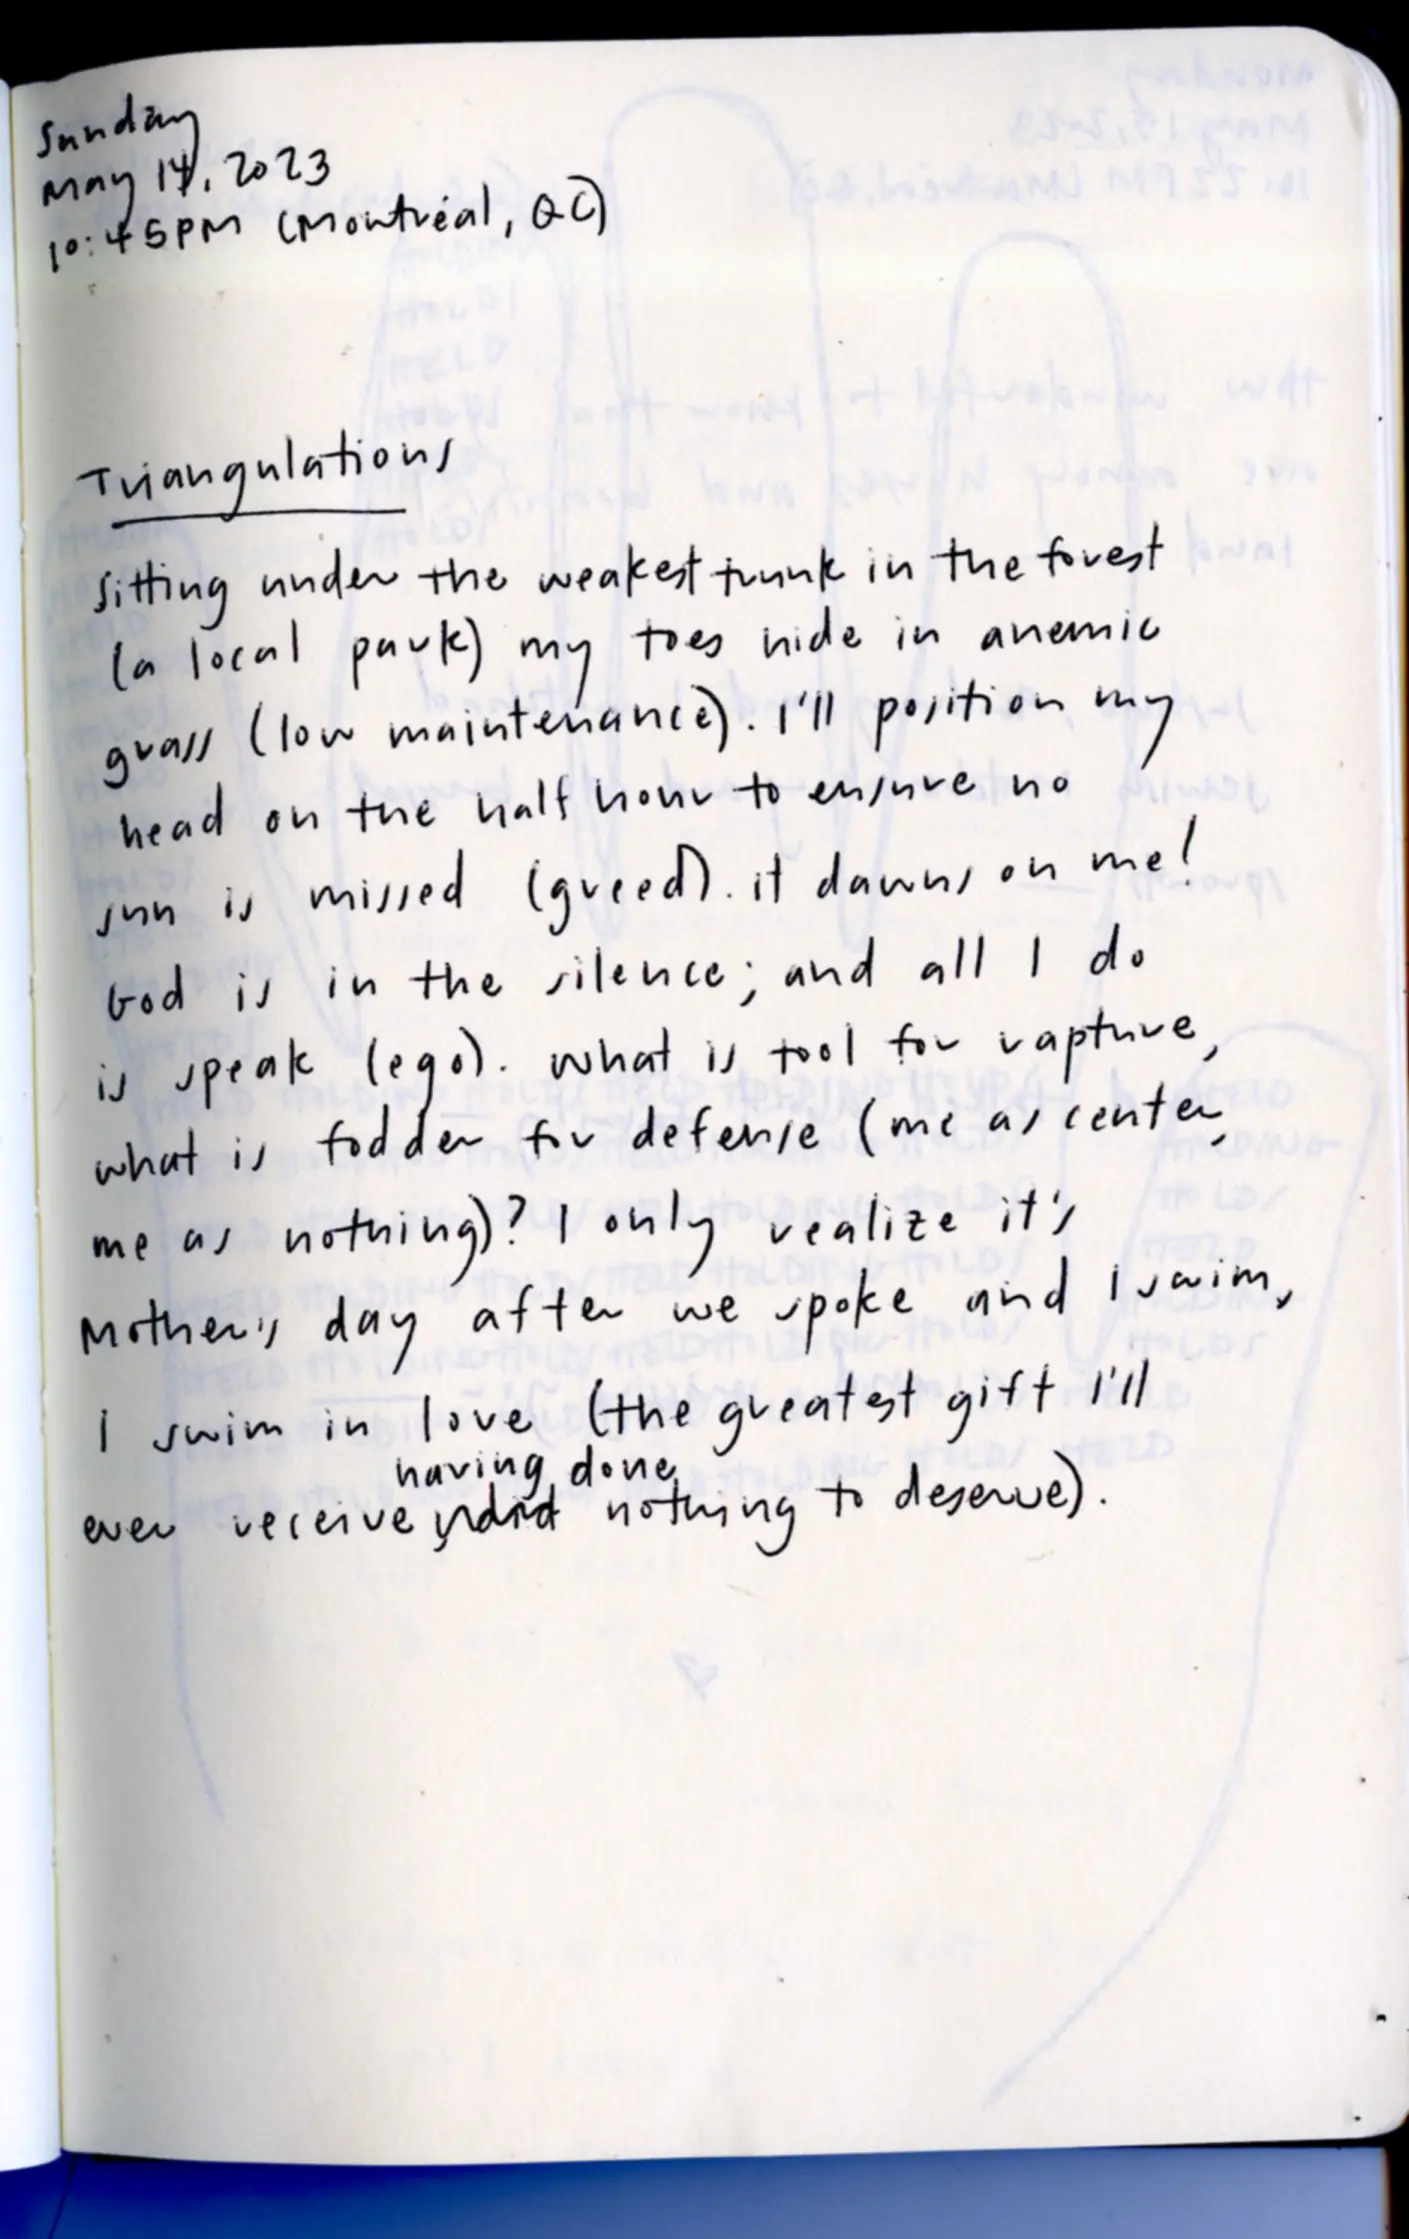 Sunday
May 14, 2023
10:45PM (Montréal, QC)
Triangulations
Sitting under the weakest trunk in the forest
(a local park) my toes hide in anemic
grass (low maintenance). I'll position my
head on the half hour to ensure no
sun is missed (greed). it dawns on me!
God is in the silence; and all I do
is speak (ego). What is tool for rapture,
what is fodder for defense (me as center,
me as nothing)? I only realize it's
Mother's day after we spoke and I swim,
I swim in love (the greatest gift I'll
having done
ever receive did nothing to deserve).